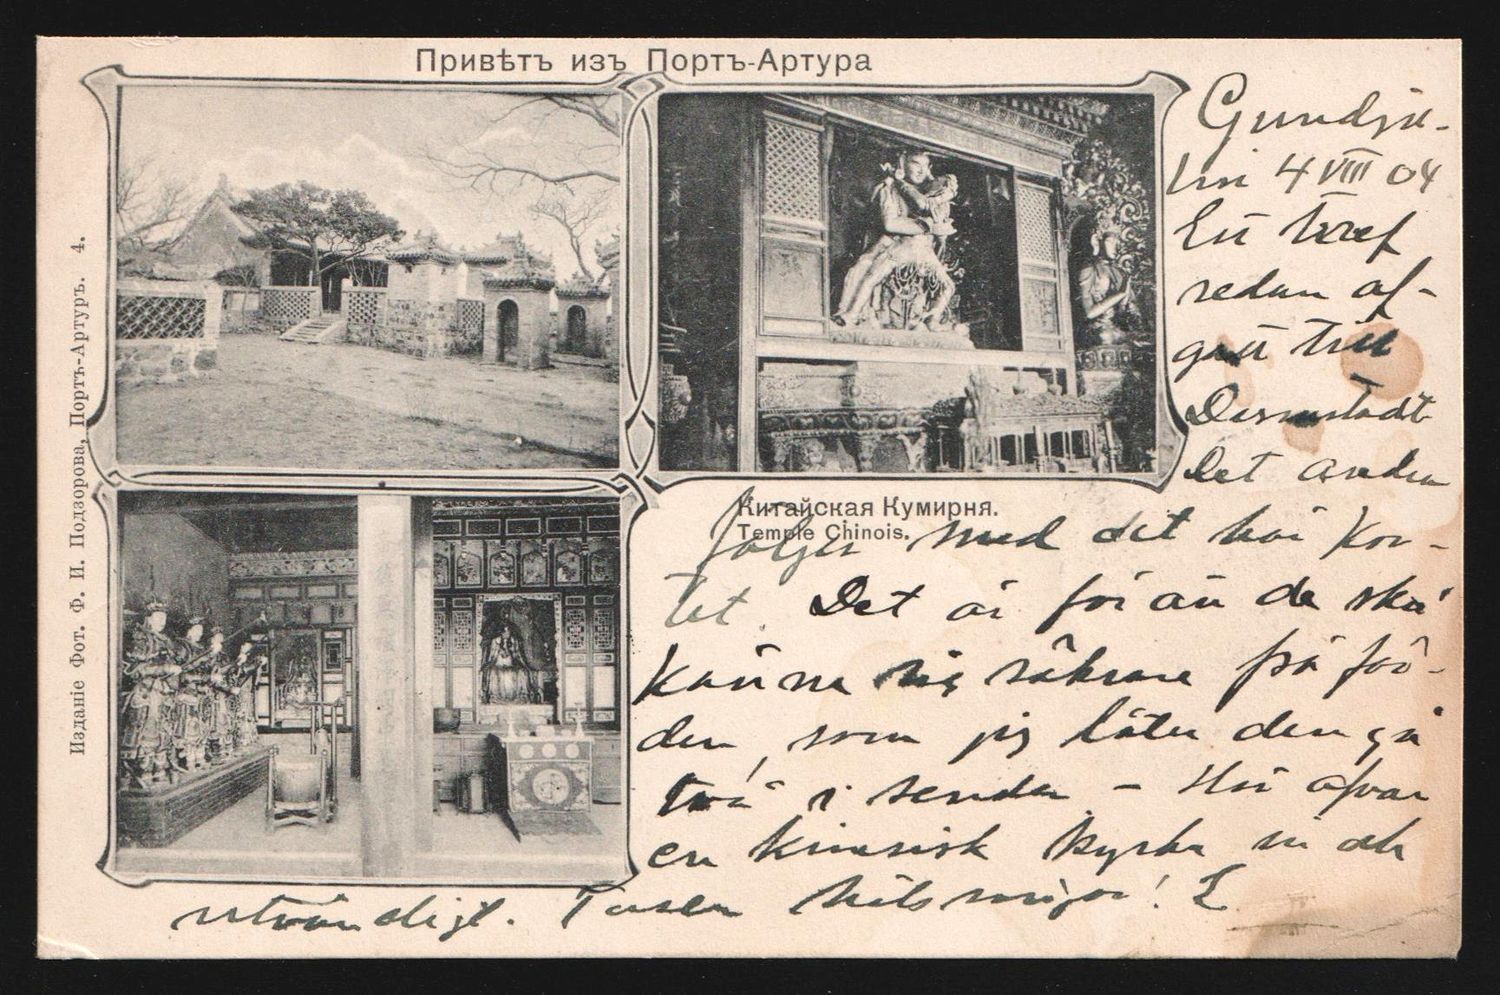 Привѣтъ изъ Портъ-Артура
Изданіе Фот. Ф. И. Подзорова, Портъ-Артуръ. 4.
Китайская Кумирня.
Temple Chinois.
Gundju-
lin 4 VIII 04
redan af-
gått till
Darmstadt
Det andra
följer med det här kor-
tet. Det är för att de ska
kunna
den, som jag låter den gå
två i sender -
en kinesisk kyrka in och
utvändigt. Tusen hälsningar! L